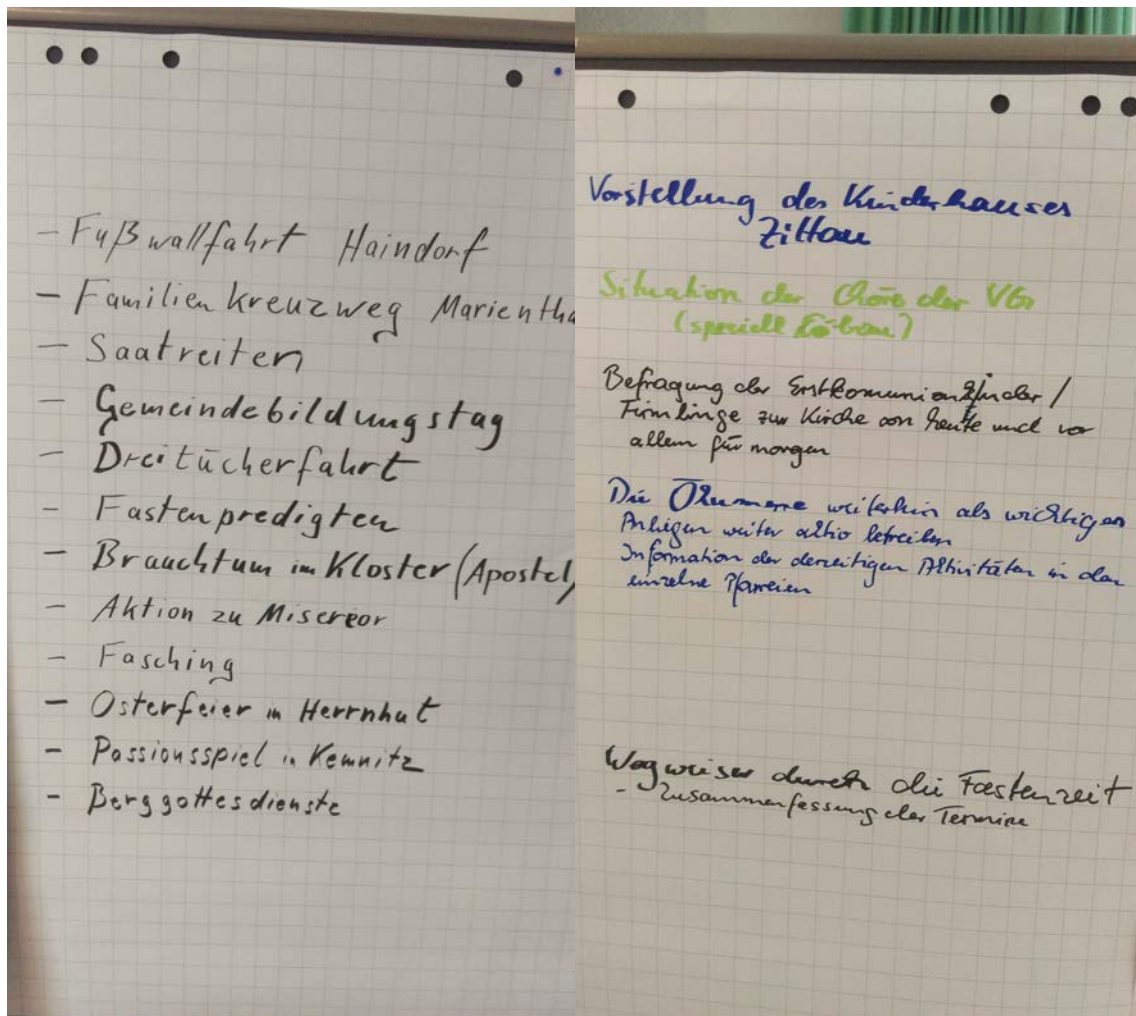 - Fußwallfahrt Haindorf
- Familienkreuzweg Marientha
- Saatreiten
- Gemeindebildungstag
- Dreitücherfahrt
- Fastenpredigten
- Brauchtum im Kloster (Apostel)
- Aktion zu Misereor
- Fasching
- Osterfeier in Herrnhut
- Passionsspiel in Kemnitz
- Berggottesdienste
Vorstellung des Kinderhauses
Zittau
Situation der Chöre der
(speziell Löbau)
Befragung der Erstkomunionkinder /
Firmlinge zur Kirche von heute und vor
allem für morgen
Die Ökumene weiterhin als wichtiges
Anligen weiter aktiv betreiben
Information der derzeitigen Aktivitäten in den
einzelne Pfarreien
Wegweiser durch die Fastenzeit
- Zusammenfassung der Termine